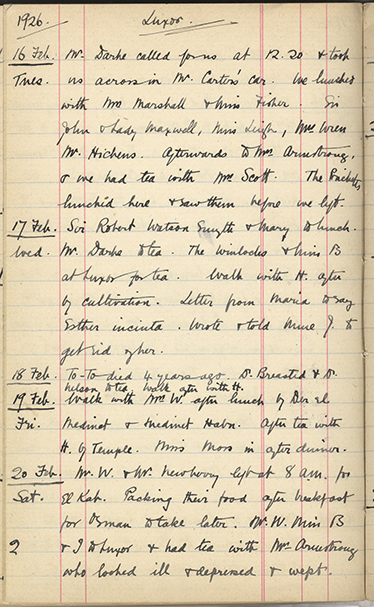 1926. Luxor.
16 Feb. Mr. Darke called for us at 12.20 & took
Tues. us across in Mr. Carter's car. We lunched
with Mrs Marshall & Miss Fisher. Sir
John & Lady Maxwell, Miss Leigh, Mrs Wren
Mr. Hichens. Afterwards to Mrs Armstrong,
& we had tea with Mrs Scott. The
lunched here & saw them before we left.
17 Feb. Sir Robert Watson Smyth & Mary to lunch.
Wed. Mr. Darke to tea. The Winlocks & Miss B
at Luxor for tea. Walk with H. after
by cultivation. Letter from Maria to say
Esther incinta. Wrote & told Mme J. to
get rid of her.
18 Feb. To-To died 4 years ago. Dr. Breasted & Dr.
Nelson to tea. Walk after with H.
19 Feb. Walk with Mrs W. after lunch by Der el
Fri. Medinet & Medinet Habu. After tea with
H. by Temple. Miss Moss in after dinner.
20 Feb. Mr. W. & Mr. Newberry left at 8 am. for
Sat. El Kab. Packing their food after breakfast
for Osman to take later. Mr. W. Miss B
2 & I to Luxor & had tea with Mrs Armstrong
who looked ill & depressed & wept.